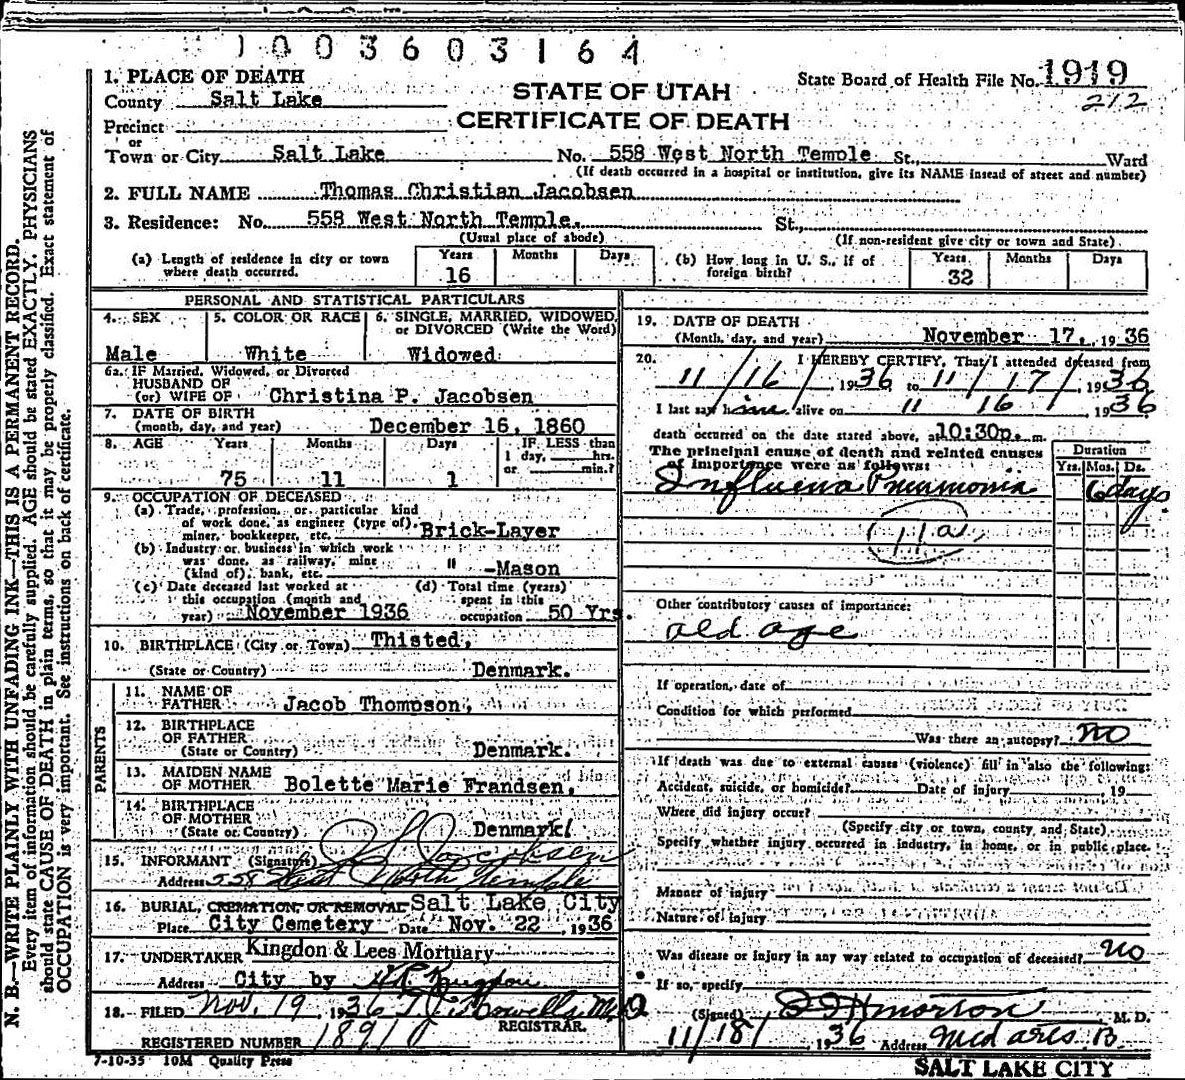 1003603164
1. PLACE OF DEATH
County Salt Lake
STATE OF UTAH
State Board of Health File No. 1919
212
Precinct
CERTIFICATE OF DEATH
or
Town or City Salt Lake No. 558 West North Temple St., Ward
(If death occurred in a hospital or institution, give its NAME insead of street and number)
2. FULL NAME Thomas Christian Jacobsen
3. Residence: No. 558 West North Temple. St.,
(Usual place of abode) (If non-resident give city or town and State)
(a) Length of residence in city or town where death occurred. Years 16 Months Days
(b) How long in U. S., if of foreign birth? Years 32 Months Days
PERSONAL AND STATISTICAL PARTICULARS
4. SEX Male
5. COLOR OR RACE White
6. SINGLE, MARRIED, WIDOWED, or DIVORCED (Write the Word) Widowed
6a. IF Married, Widowed, or Divorced
HUSBAND OF
(or) WIFE OF Christina P. Jacobsen
7. DATE OF BIRTH
(month, day, and year) December 16, 1860
8. AGE Years 75 Months 11 Days 1 IF LESS than 1 day, hrs. or min.?
9. OCCUPATION OF DECEASED
(a) Trade, profession, or particular kind
of work done, as engineer (type of),
miner, bookkeeper, etc. Brick-Layer
(b) Industry or business in which work
was done, as railway, mine
(kind of), bank, etc. " -Mason
(c) Date deceased last worked at
this occupation (month and
year) November 1936
(d) Total time (years)
spent in this
occupation 50 Yrs.
10. BIRTHPLACE (City or Town) Thisted,
(State or Country) Denmark.
PARENTS
11. NAME OF
FATHER Jacob Thompson,
12. BIRTHPLACE
OF FATHER
(State or Country) Denmark.
13. MAIDEN NAME
OF MOTHER Bolette Marie Frandsen,
14. BIRTHPLACE
OF MOTHER
(State or Country) Denmark.
15. INFORMANT (Signature) Jacobsen
Address 558 West North Temple
16. BURIAL, CREMATION, OR REMOVAL Salt Lake City
Place City Cemetery Date Nov. 22, 1936
17. UNDERTAKER Kingdon & Lees Mortuary
Address City by Kingdon
18. FILED Nov. 19 1936 M.D.
REGISTRAR.
REGISTERED NUMBER 1891
7-10-35 10M Quality Press
19. DATE OF DEATH
(Month, day, and year) November 17, 1936
20. I HEREBY CERTIFY, That I attended deceased from
11/16/, 1936 to 11/17/, 1936
I last saw him alive on 11 16, 1936
death occurred on the date stated above, at 10:30p. m.
The principal cause of death and related causes
of importance were as follows:
Duration
Yrs. Mos. Ds.
Influena Pneumonia 6 days
11a
Other contributory causes of importance:
old age
If operation, date of
Condition for which performed
Was there an autopsy? no
If death was due to external causes (violence) fill in also the following:
Accident, suicide, or homicide? Date of injury, 19
Where did injury occur?
(Specify city or town, county and State)
Specify whether injury occurred in industry, in home, or in public place.
Manner of injury
Nature of injury
Was disease or injury in any way related to occupation of deceased? no
If so, specify
(Signed) M. D.
11/18/ 1936 Address Med arts B.
SALT LAKE CITY
N. B.—WRITE PLAINLY WITH UNFADING INK—THIS IS A PERMANENT RECORD.
Every item of information should be carefully supplied. AGE should be stated EXACTLY. PHYSICIANS
should state CAUSE OF DEATH in plain terms, so that it may be properly classified. Exact statement of
OCCUPATION is very important. See instructions on back of certificate.